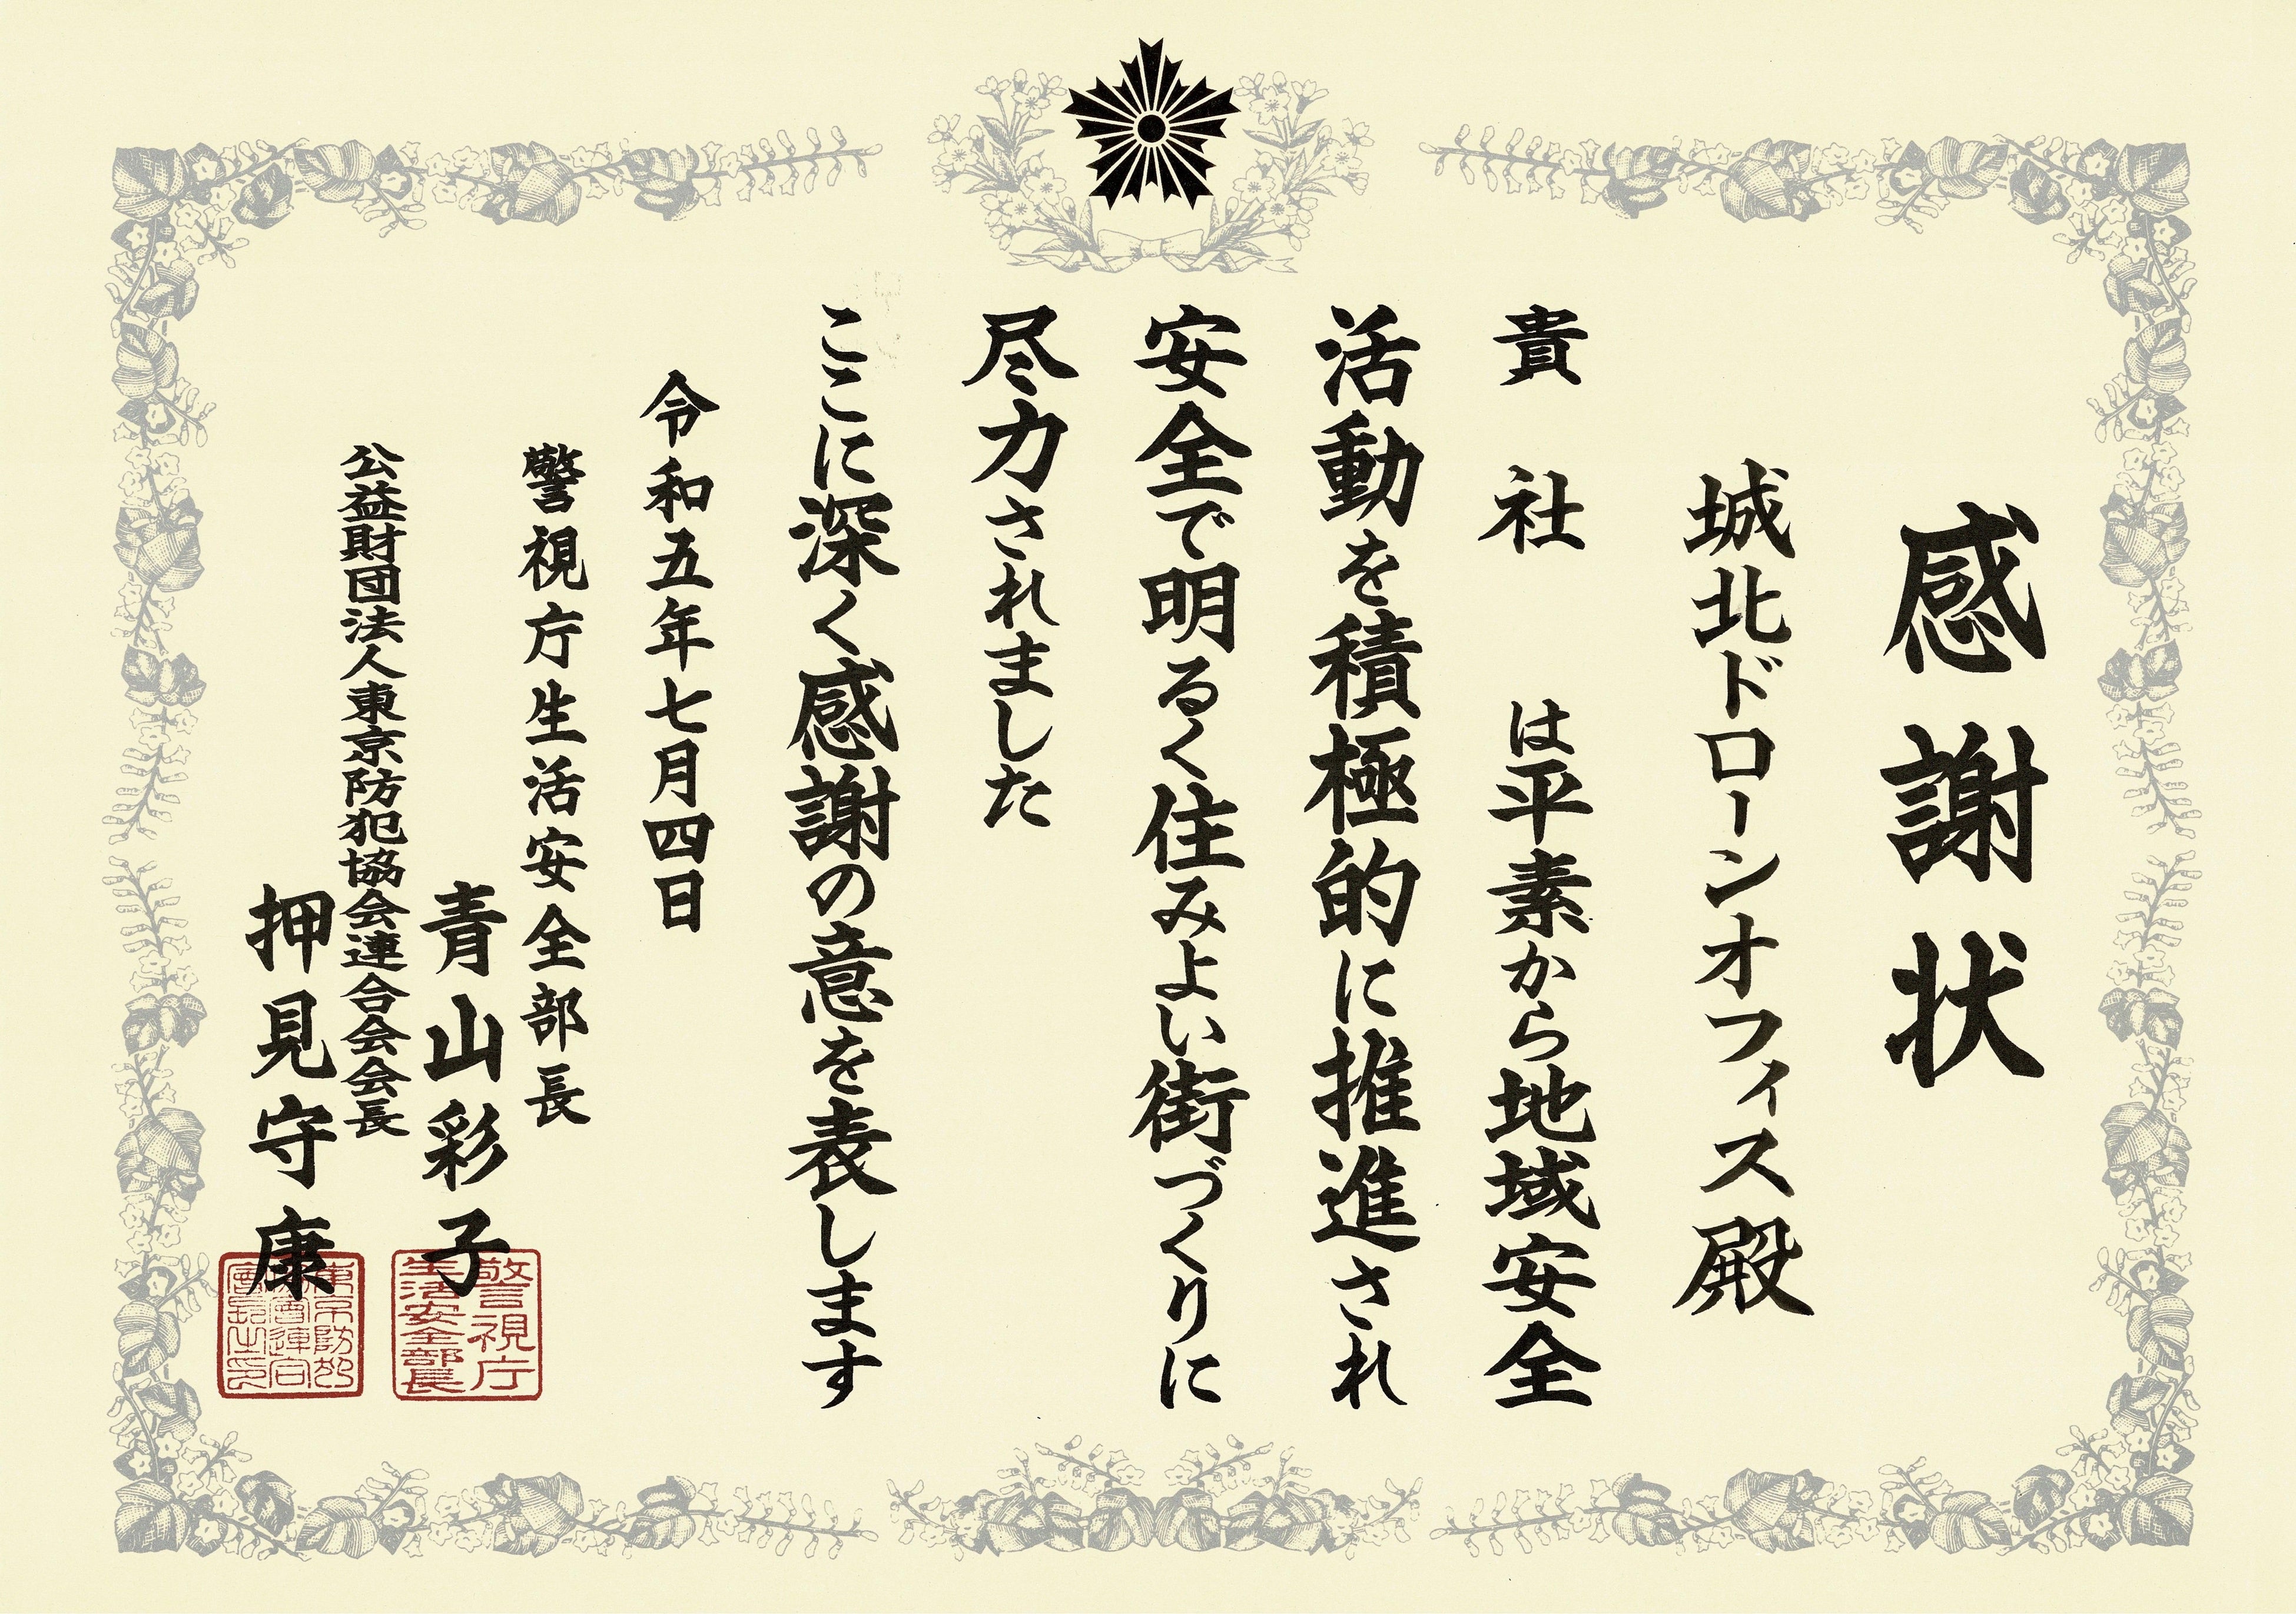 感謝状
城北ドローンオフィス殿
貴社は平素から地域安全
活動を積極的に推進され
安全で明るく住みよい街づくりに
尽力されました
ここに深く感謝の意を表します
令和五年七月四日
警視庁生活安全部長
青山彩子
警視庁
生活安全部長
公益財団法人東京防犯協会連合会会長
押見守康